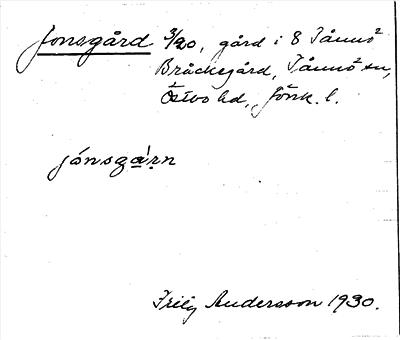 Jonsgård 3/20, gård i 8 Tånnö
Bråcksgård, Tånnö sn,
Östbo hd, Jönk. l.
jónsgàṛn
Andersson 1930.